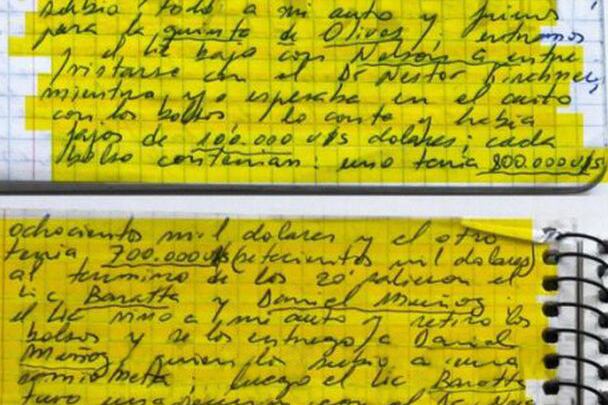 subio todo a mi auto y fuimos
para la quinta de Olivos, entramos
y el lic bajo con Nelson a entre
vistarse con el Dr Nestor Kirchner,
mientra yo esperaba en el auto
con los bolsos, lo conte y habia
fajos de 100.000 u$s dolares; cada
bolso contenian: uno tenia 800.000 u$s
ochocientos mil dolares y el otro
tenia 700.000 u$s (setecientos mil dolares)
al termino de los 20' salieron el
Lic Baratta y Daniel Muñoz
el Lic vino a mi auto y retiro los
bolsos y se los entrego a Daniel
Muñoz quien los subio a una
camioneta, luego el Lic Baratta
tuvo una con el Dr